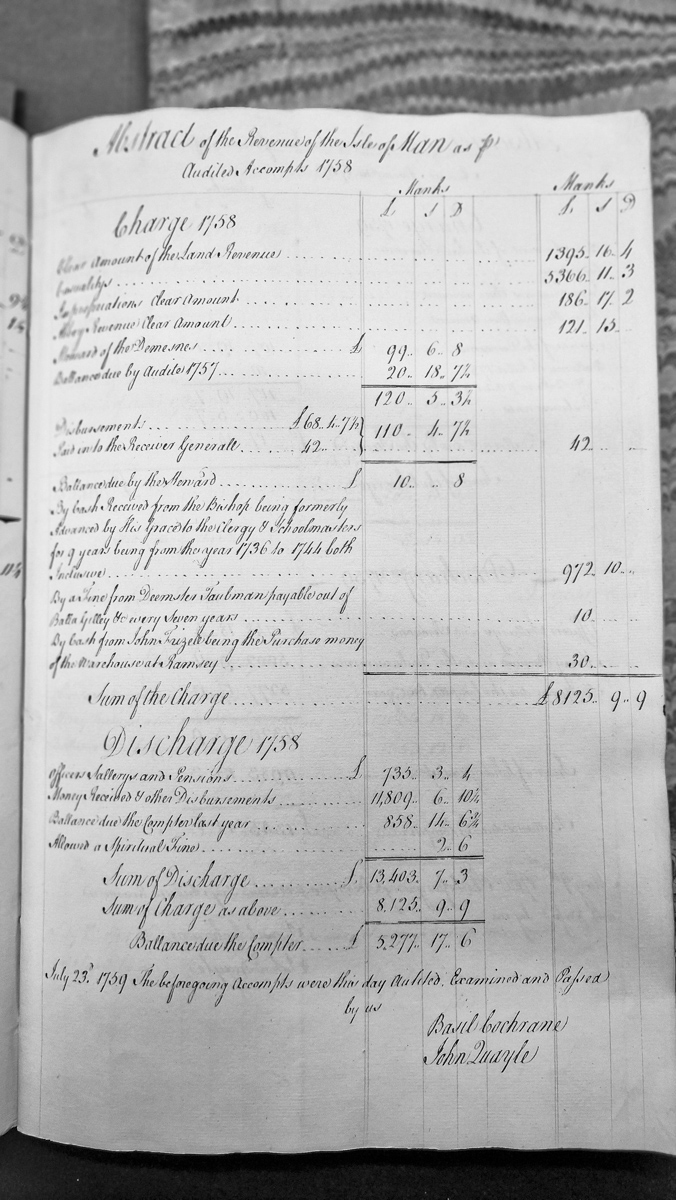 Abstract of the Revenue of the Isle of Man as pr
Audited Accompts 1758
Manks Manks
£ S D £ S D
Charge 1758
Clear Amount of the Land Revenue 1395.. 16.. 4
Casualtys 5366.. 11.. 3
Impropriations Clear Amount 186.. 17.. 2
Abbey Revenue Clear Amount 121.. 15..
Steward of the Demesnes £ 99.. 6.. 8
Ballance due by Audite 1757 20.. 18.. 7½
120.. 5.. 3½
Disbursements £68..4..7½ } 110.. 4.. 7½
Paid into the Receiver Generall 42.. 42.. .. ..
Ballance due by the Steward £ 10.. .. 8
By Cash Received from the Bishop being formerly
Advanced by His Grace to the Clergy & Schoolmasters
for 9 years being from the year 1736 to 1744 both
Inclusive 972.. 10.. ..
By a Fine from Deemster Taubman payable out of
Balla Gilley &c every Seven years 10.. .. ..
By Cash from John Frizell being the Purchase money
of the Warehouse at Ramsey 30.. .. ..
Sum of the Charge £8125.. 9.. 9
Discharge 1758
Officers Sallerys and Pensions £ 735.. 3.. 4
Money Received & other Disbursements 11,809.. 6.. 10½
Ballance due the Compter last year 858.. 14.. 6½
Allowed a Spiritual Fine 2.. 6
Sum of Discharge £ 13,403.. 7.. 3
Sum of Charge as above 8,125.. 9.. 9
Ballance due the Compter £ 5,277.. 17.. 6
July 23d. 1759 The beforegoing Accompts were this day Audited, Examined and Passed
by us
Basil Cochrane
John Quayle